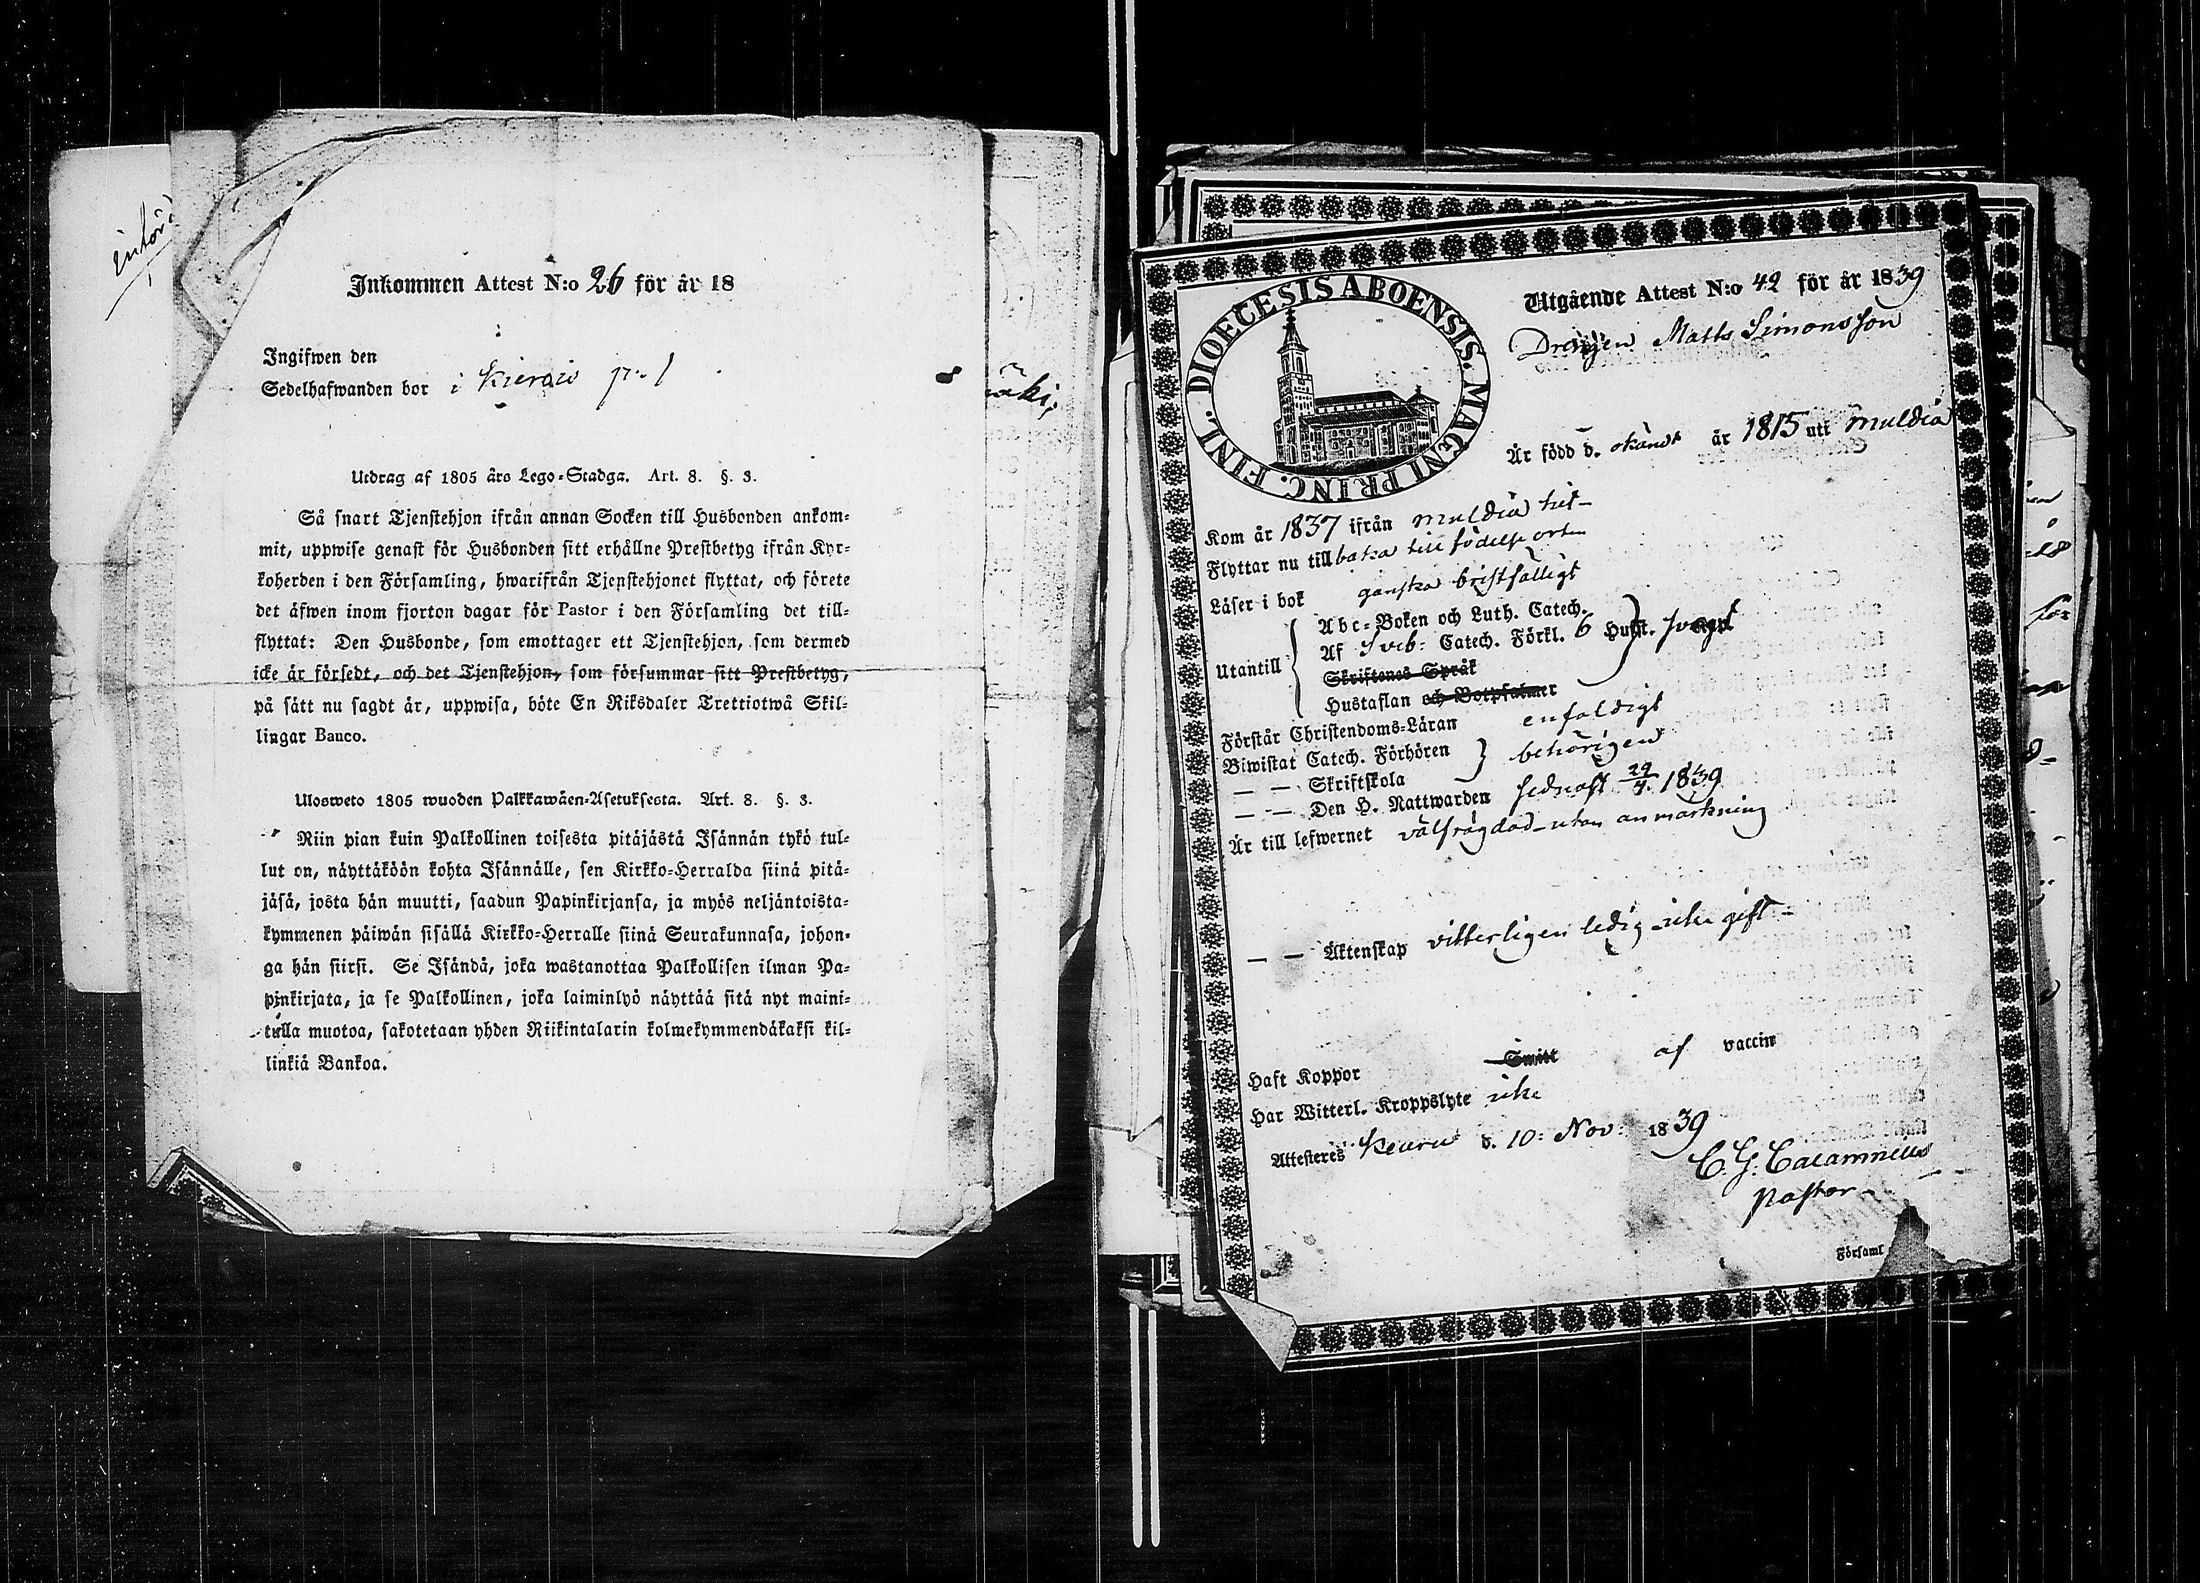 Inkommen Attest N:o 26 för år 18
Ingifwen den
Sedelhafwanden bor i
Utdrag af 1805 års Lego-Stadga. Art. 8. §. 3.
Så snart Tjenstehjon ifrån annan Socken till Husbonden ankom-
mit, uppwise genast för Husbonden sitt erhållne Prestbetyg ifrån Kyr-
koherden i den Församling, hwarifrån Tjenstehjonet flyttat, och förete
det äfwen inom fjorton dagar för Pastor i den Församling det till-
flyttat: Den Husbonde, som emottager ett Tjenstehjon, som dermed
icke är försedt, och det Tjenstehjon, som försummar sitt Prestbetyg,
på sätt nu sagdt är, uppwisa, böte En Riksdaler Trettiotwå Skil-
lingar Banco.
Ulosweto 1805 wuoden Palkkawäen-Asetuksesta. Art. 8. §. 3.
Niin pian kuin Palkollinen toisesta pitäjästä Isännän tykö tul-
lut on, näyttäköön kohta Isännälle, sen Kirkko-Herralda siinä pitä-
jäsä, josta hän muutti, saadun Papinkirjansa, ja myös neljäntoista-
kymmenen päiwän sisällä Kirkko-Herralle siinä Seurakunnasa, johon-
ga hän siirsi. Se Isändä, joka wastanottaa Palkollisen ilman Pa-
pinkirjata, ja se Palkollinen, joka laiminlyö näyttää sitä nyt maini-
tulla muotoa, sakotetaan yhden Riikintalarin kolmekymmendäkaksi kil-
linkiä Bankoa.
äki,
DIOECESIS ABOENSIS. MAGNI PRINC. FINL.
Utgående Attest N:o 42 för år 1839
Drengen Matts Simonsson
Är född d. okändt år 1815 uti Muldia
Kom år 1837 ifrån Muldia hit-
Flyttar nu tillbaka till födelse orten
Läser i bok ganska bristfälligt
Abc-Boken och Luth. Catech.
Utantill Af Sveb: Catech. Förkl. 6 Hufst. svagt
Skriftenes Språk
Hustaflan och Botpsalmer
Förstår Christendoms-Läran enfaldigt
Biwistat Catech. Förhören behörigen
— — Skriftskola
— — Den H. Nattwarden sednast 29/9 1839
Är till lefwernet välfrägdad utan anmärkning
— — Äktenskap vitterligen ledig icke gift-
Haft Koppor Smitt af vaccin
Har Witterl. Kroppslyte icke
Attesteres Keuru d. 10: Nov: 1839
C. G. Calamnius
Pastor
Församl